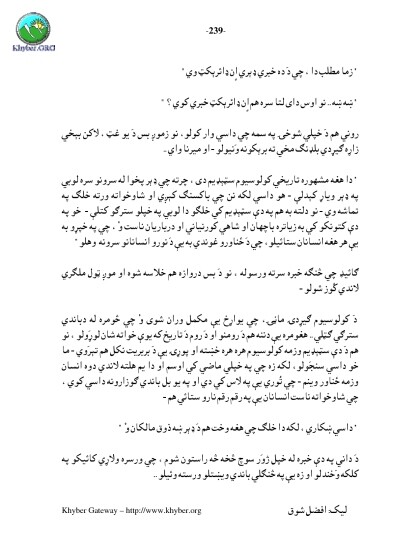 -239-
Khyber.ORG
"زما مطلب دا ، چې دَ ده خبرې ډېرې اِن ډائرېکټ وي"
"ښه ښه.. نو اوس دای لتا سره هم اِن ډائرېکټ خبرې کوي ؟ "
روني هم دَ خپلې شوخۍ. په سمه چې داسې وار کولو ، نو زموږ بس دَ يو غټ ، لاکن بېخي
زاړه ګېردي بلډنګ مخې ته برېکونه وَنيولو - او ميرنا واي ..
"دا هغه مشهوره تاريخي کولوسيوم سټيډيم دی ، چرته چې ډېر پخوا له سرونو سره لوبې
په ډېر وياړ کېدلې - هو داسې لکه نن چې باکسنګ کېږي او شاوخوانه ورته خلګ په
تماشه وي - نو دلته به هم په دې سټيډيم کې خلګو دا لوبې په خپلو سترګو کتلې - خو په
دې کتونکو کې به زياتره باچهان او شاهي کورنيانې او درباريان ناست وُ ، چې په خپرو به
يې هر هغه انسانان ستائيلو ، چې دَ ځناورو غوندې به يې دَ نورو انسانانو سرونه وهلو "
ګائيډ چې څنګه خبره سرته ورسوله ، نو دَ بس دروازه هم خلاسه شوه او موږ ټول ملګري
لاندې کُوز شولو -
دَ کولوسيوم ګېردۍ. ماڼۍ، چې يوارخ يې مکمل وران شوی وُ چې څومره له دباندې
سترګې ګټلې.. هغومره يې دننه هم دَ رومنو او دَ روم دَ تاريخ که يوې خواته شان لوړولو ، نو
هم دَ دې سټيډيم وزمه کولوسيوم هره هره خښته او پوړۍ يې دَ بربريت نکل هم تېروَي - ما
خو داسې سنجولو ، لکه زه چې په خپلې ماضي کې اوسم او دا يم هلته لاندې دوه انسان
وزمه ځناور وينم - چې تُورې يې په لاس کې دي او په يو بل باندې ګوزارونه داسې کوي ،
چې شاوخوانه ناست انسانان يې په رقم رقم نارو ستائي هم -
"داسې ښکاري ، لکه دا خلګ چې هغه وخت هم دَ ډېر ښه ذوق مالکان وُ "
دَ داني په دې خبره له خپل ژوَر سوچ څخه څه راستون شوم ، چې ورسره ولاړې کائيکو په
کلکه وَخندلو او زه يې په څنګلې باندې ويښتلو ورسته وئيلو ..
Khyber Gateway – http://www.khyber.org
ليک: افضل شوق